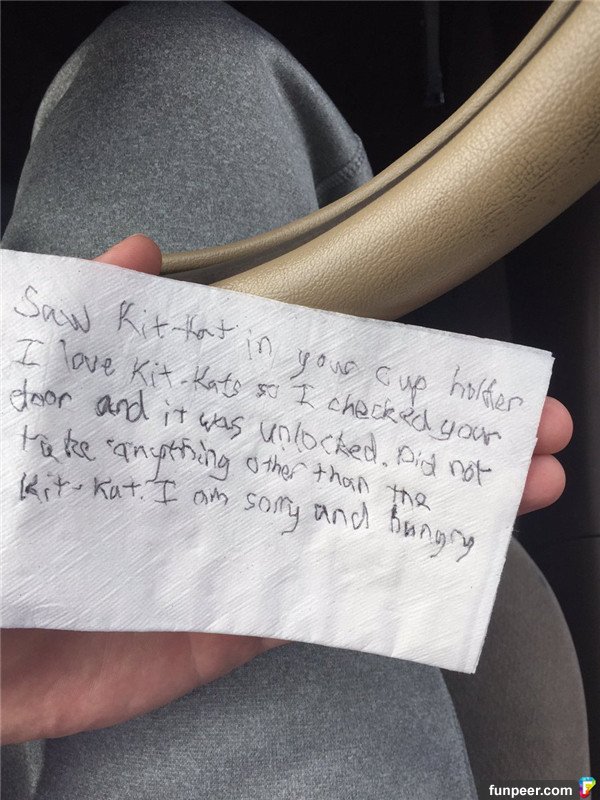 Saw Kit-Kat in your cup holder
I love Kit-Kats so I checked your
door and it was unlocked. Did not
take anything other than the
Kit-Kat. I am sorry and hungry
funpeer.com